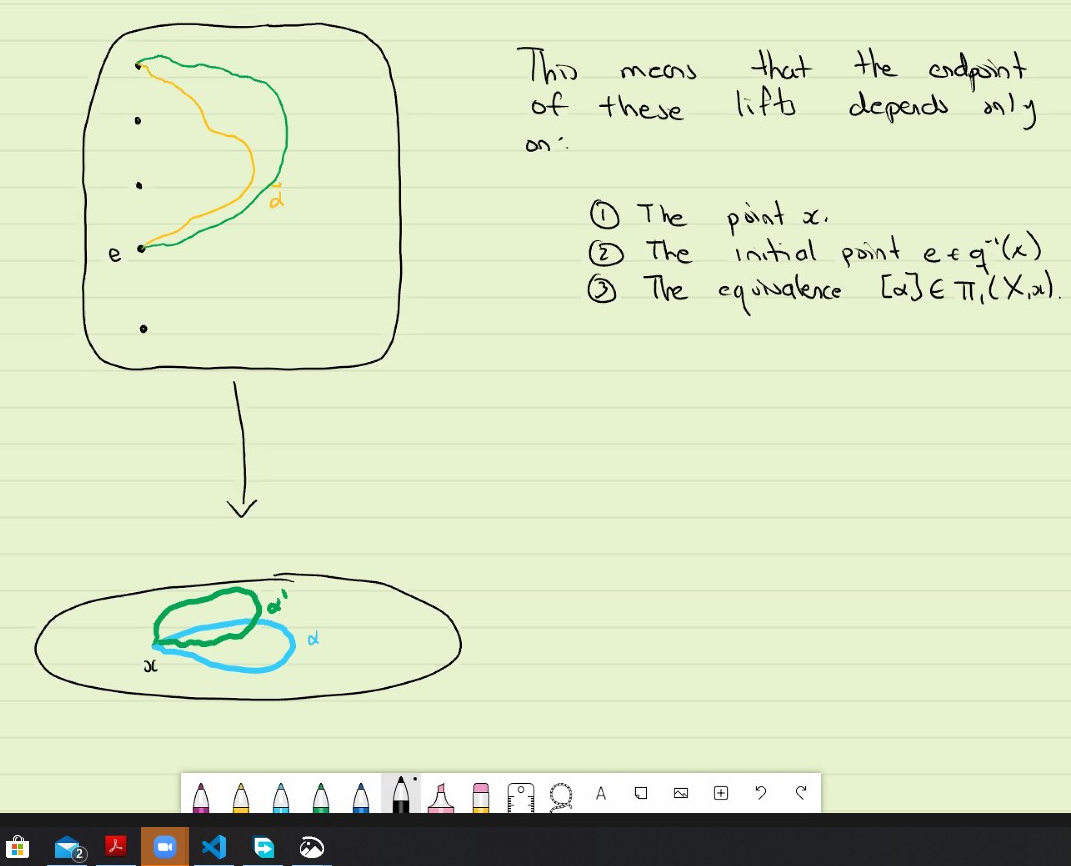 This means that the endpoint
of these lifts depends only
on:
① The point x.
② The initial point e ∈ q⁻¹(x)
③ The equivalence [α] ∈ π₁(X,x).
α̃
e
α'
α
x
A
2